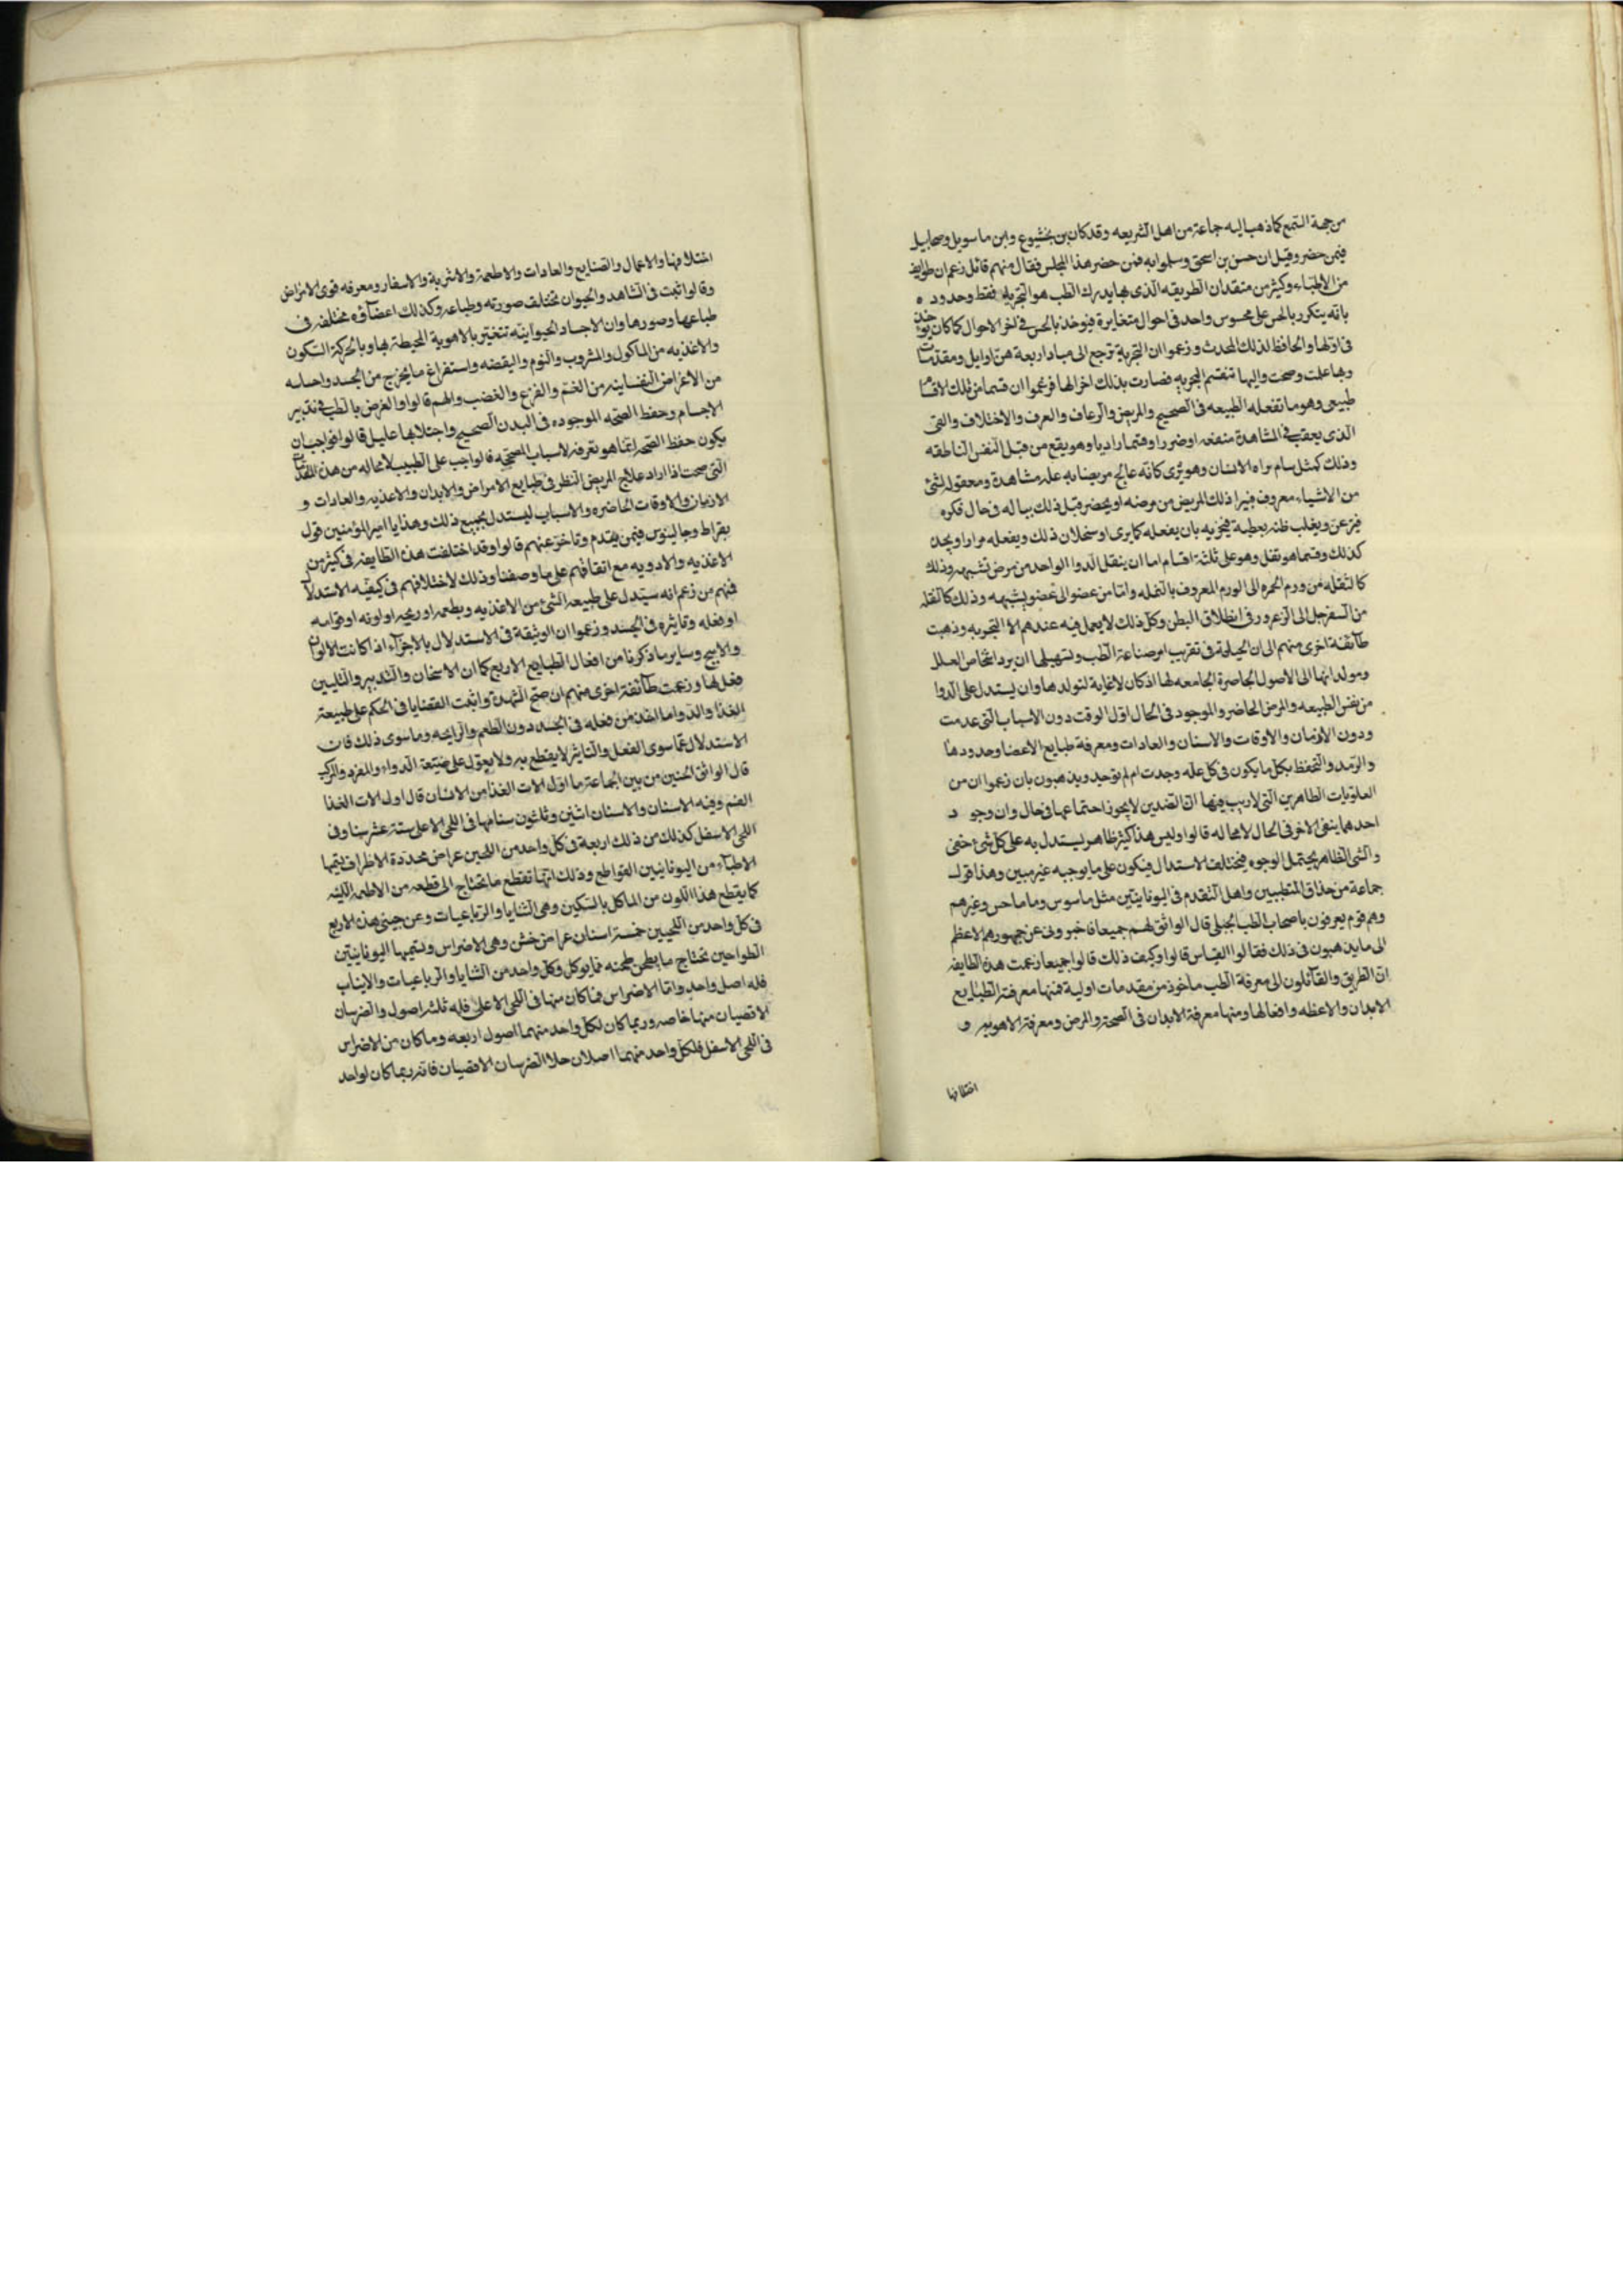 من جهة السمع كما ذهب اليه جماعة من اهل الشريعه وقد كان بن بختيشوع وابن ماسويه وميخاييل
فيمن حضر وقيل ان حسن بن اسحق وسلمويه فمن حضر هذا المجلس فقال منهم قائل زعم ان طوايف
من الاطباء وكثير من متقدان الطريقه الذى بها يدرك الطب هو التجربه فقط وحدوده
بانه يتكرر بالحس على محسوس واحد فى احوال متغايرة فيوخذ بالحس فى اخر الاحوال كما كان يوخذ
فى اولها والحافظ لذلك المحدث وزعموا ان التجربة ترجع الى مبادا ربعة هن اوايل ومقدمات
وبها علمت وصحت واليها تنقسم التجربه فصارت بذلك اخرالها فزعموا ان قسما من تلك الاقسام
طبيعى وهو ما تفعله الطبيعه فى الصحيح والمريض والرعاف والعرق والاختلاف والقى
الذى يعقب فى المشاهدة منفعه او ضررا وقسما راديا وهو يقع من قبل النفس الناطقه
وذلك كمثل سام يراه الانسان وهو يرى كانه عالج مريضا به علة مشاهدة ومعقوله لشئ
من الاشياء معروف فيبرا ذلك المريض من مرضه او يحضر قبل ذلك بباله فى حال فكره
ويغلب ظنه بعطبه فيجربه بان يفعله كما يرى او سخلان ذلك ويفعله مرارا ويجد
كذلك وقسما هو نقل وهو على ثلثة اقسام اما ان ينقل الدوا الواحد من مرض تشبهه وذلك
كالنقله من ورم الحمره الى الورم المعروف بالنمله واما من عضو الى عضو يشبهه وذلك كالنقله
من السفرجل الى الزعرور فى انطلاق البطن وكل ذلك لا يعمل فيه عندهم الا التجربه وذهبت
طائفة اخرى منهم الى ان الحيلة فى تقريب امر صناعة الطب وتسهيلها ان يرد اشخاص العلل
ومولداتها الى الاصول الحاصرة الجامعه لها اذ كان لا غاية لتولدها وان يستدل على الدوا
من نفس الطبيعه والمرض الحاضر والموجود فى الحال اول الوقت دون الاسباب التى عدمت
ودون الازمان والاوقات والاسنان والعادات ومعرفة طبايع الاعضا وحدودها
والرصد والتحفظ بكل ما يكون فى كل علة وجدت ام لم توجد ويذهبون بان زعموا ان من
العلويات الظاهرين التى لا ريب فيها ان الضدين لا يجوز اجتماعهما فى حال وان وجود
احدهما ينفى الاخر فى الحال لا محاله قالوا وليس هذا كشئ ظاهر ليستدل به على كل شئ خفى
والشى الظاهر يحتمل الوجوه فيختلف الاستدال فيكون على ما يوجبه غير مبين وهذا قول
جماعة من حذاق المتطببين واهل التقدم فى اليونانيين مثل ماسوس وما ماحس وغيرهم
وهم قوم يعرفون باصحاب الطب الجبلى قال الواثق لهم جميعا فاخبرونى عن جمهورهم الاعظم
الى ما يذهبون فى ذلك فقالوا القياس قالوا وكيف ذلك قالوا جميعا زعمت هذه الطايفه
ان الطريق والقائلون الى معرفة الطب ماخوذ من مقدمات اولية فمنها معرفة الطبايع
الابدان والاعظه وافعالها ومنها معرفة الابدان فى الصحة والمرض ومعرفة الاهويه و
اختلافها
اختلافها والاعمال والصنايع والعادات والاطعمة والاشربة والاسفار ومعرفه قوى الامراض
وقالوا ثبت فى الشاهد والحيوان مختلف صورته وطباعه وكذلك اعضآؤه مختلفه فى
طباعها وصورها وان الاجساد الحيوانية تتغير بالاهوية المحيطة بها وبالحركة السكون
والاغذيه من الماكول والمشروب والنوم واليقضه واستفراغ ما يخرج من الجسد واحباسه
من الاعراض النفسانيه من الغم والفزع والغضب والهم قالوا والغرض بالطب فى تدبير
الاجسام وحفظ الصحه الموجوده فى البدن الصحيح واجتلابها عليل قالوا فواجب ان
يكون حفظ الصحه انما هو تعرفه لاسباب المصححه فالواجب على الطبيب لا محاله من هذه المقدمات
التى صحت اذا اراد علاج المريض النظر فى طبايع الامراض والابدان والاغذيه والعادات و
الازمان والاوقات الحاضره والاسباب ليستدل بجميع ذلك وهذا يا امير المؤمنين قول
بقراط وجالينوس فيمن يقدم وتاخر عنهم قالوا وقد اختلفت هذه الطايفه فى كثير من
الاغذيه والادويه مع اتفاقهم على ما وصفنا وذلك لاختلافهم فى كيفيه الاستدلال
فمنهم من زعم انه سيتدل على طبيعه الشئ من الاغذيه وبطعمه او ريحه او لونه او قوامه
او فعله وتاثيره فى الجسد وزعموا ان الوثيقة فى الاستدلال بالاجزآء اذا كانت الالوان
والاريح وساير ما ذكرنا من افعال الطبايع الاربع كما ان الاسخان والتدبير والتليين
فعل لها وزعمت طآئفة اخرى منهم ان صح الشهدة واثبت القضايا فى الحكم على طبيعة
الغذا والدوا ما اتخذ من فعله فى الجسد دون الطعم والرايحه وما سوى ذلك فان
الاستدلال عما سوى الفعل والتاثير لا يقطع به ولا يعول على طبيعة الدواء والمفرد والمركب
قال الواثق لحنين من بين الجماعة ما اول الات الغذا من الانسان قال اول الات الغذا
الفم وفيه الاسنان والاسنان اثنين وثلثون سنا منها فى اللحى الاعلى ستة عشر سنا وفى
اللحى الاسفل كذلك من ذلك اربعة فى كل واحد من اللحيين عراض محددة الاطراف تيمها
الاطبآء من اليونانيين القواطع وذلك انها تقطع ما تحتاج الى قطعه من الاطعمه اللينه
كما يقطع هذا اللون من الماكل بالسكين وهى الثنايا والرباعيات وعن جنبى هذه الاربع
فى كل واحد من اللحيين خمسة اسنان عراض خشن وهى الاضراس وتسيمها اليونانيين
الطواحين تحتاج ما يطحن طحنه مما يوكل وكل واحد من الثنايا والرباعيات والانياب
فله اصل واحد واما الاضراس فما كان منها فى اللحى الاعلى فله ثلثه اصول والضرسان
الاقصيان منها خاصه وربما كان لكل واحد منهما اصول اربعه وما كان من الاضراس
فى اللحى الاسفل فلكل واحد منهما اصلان خلا الضرسان الاقصيان فانه ربما كان لواحد